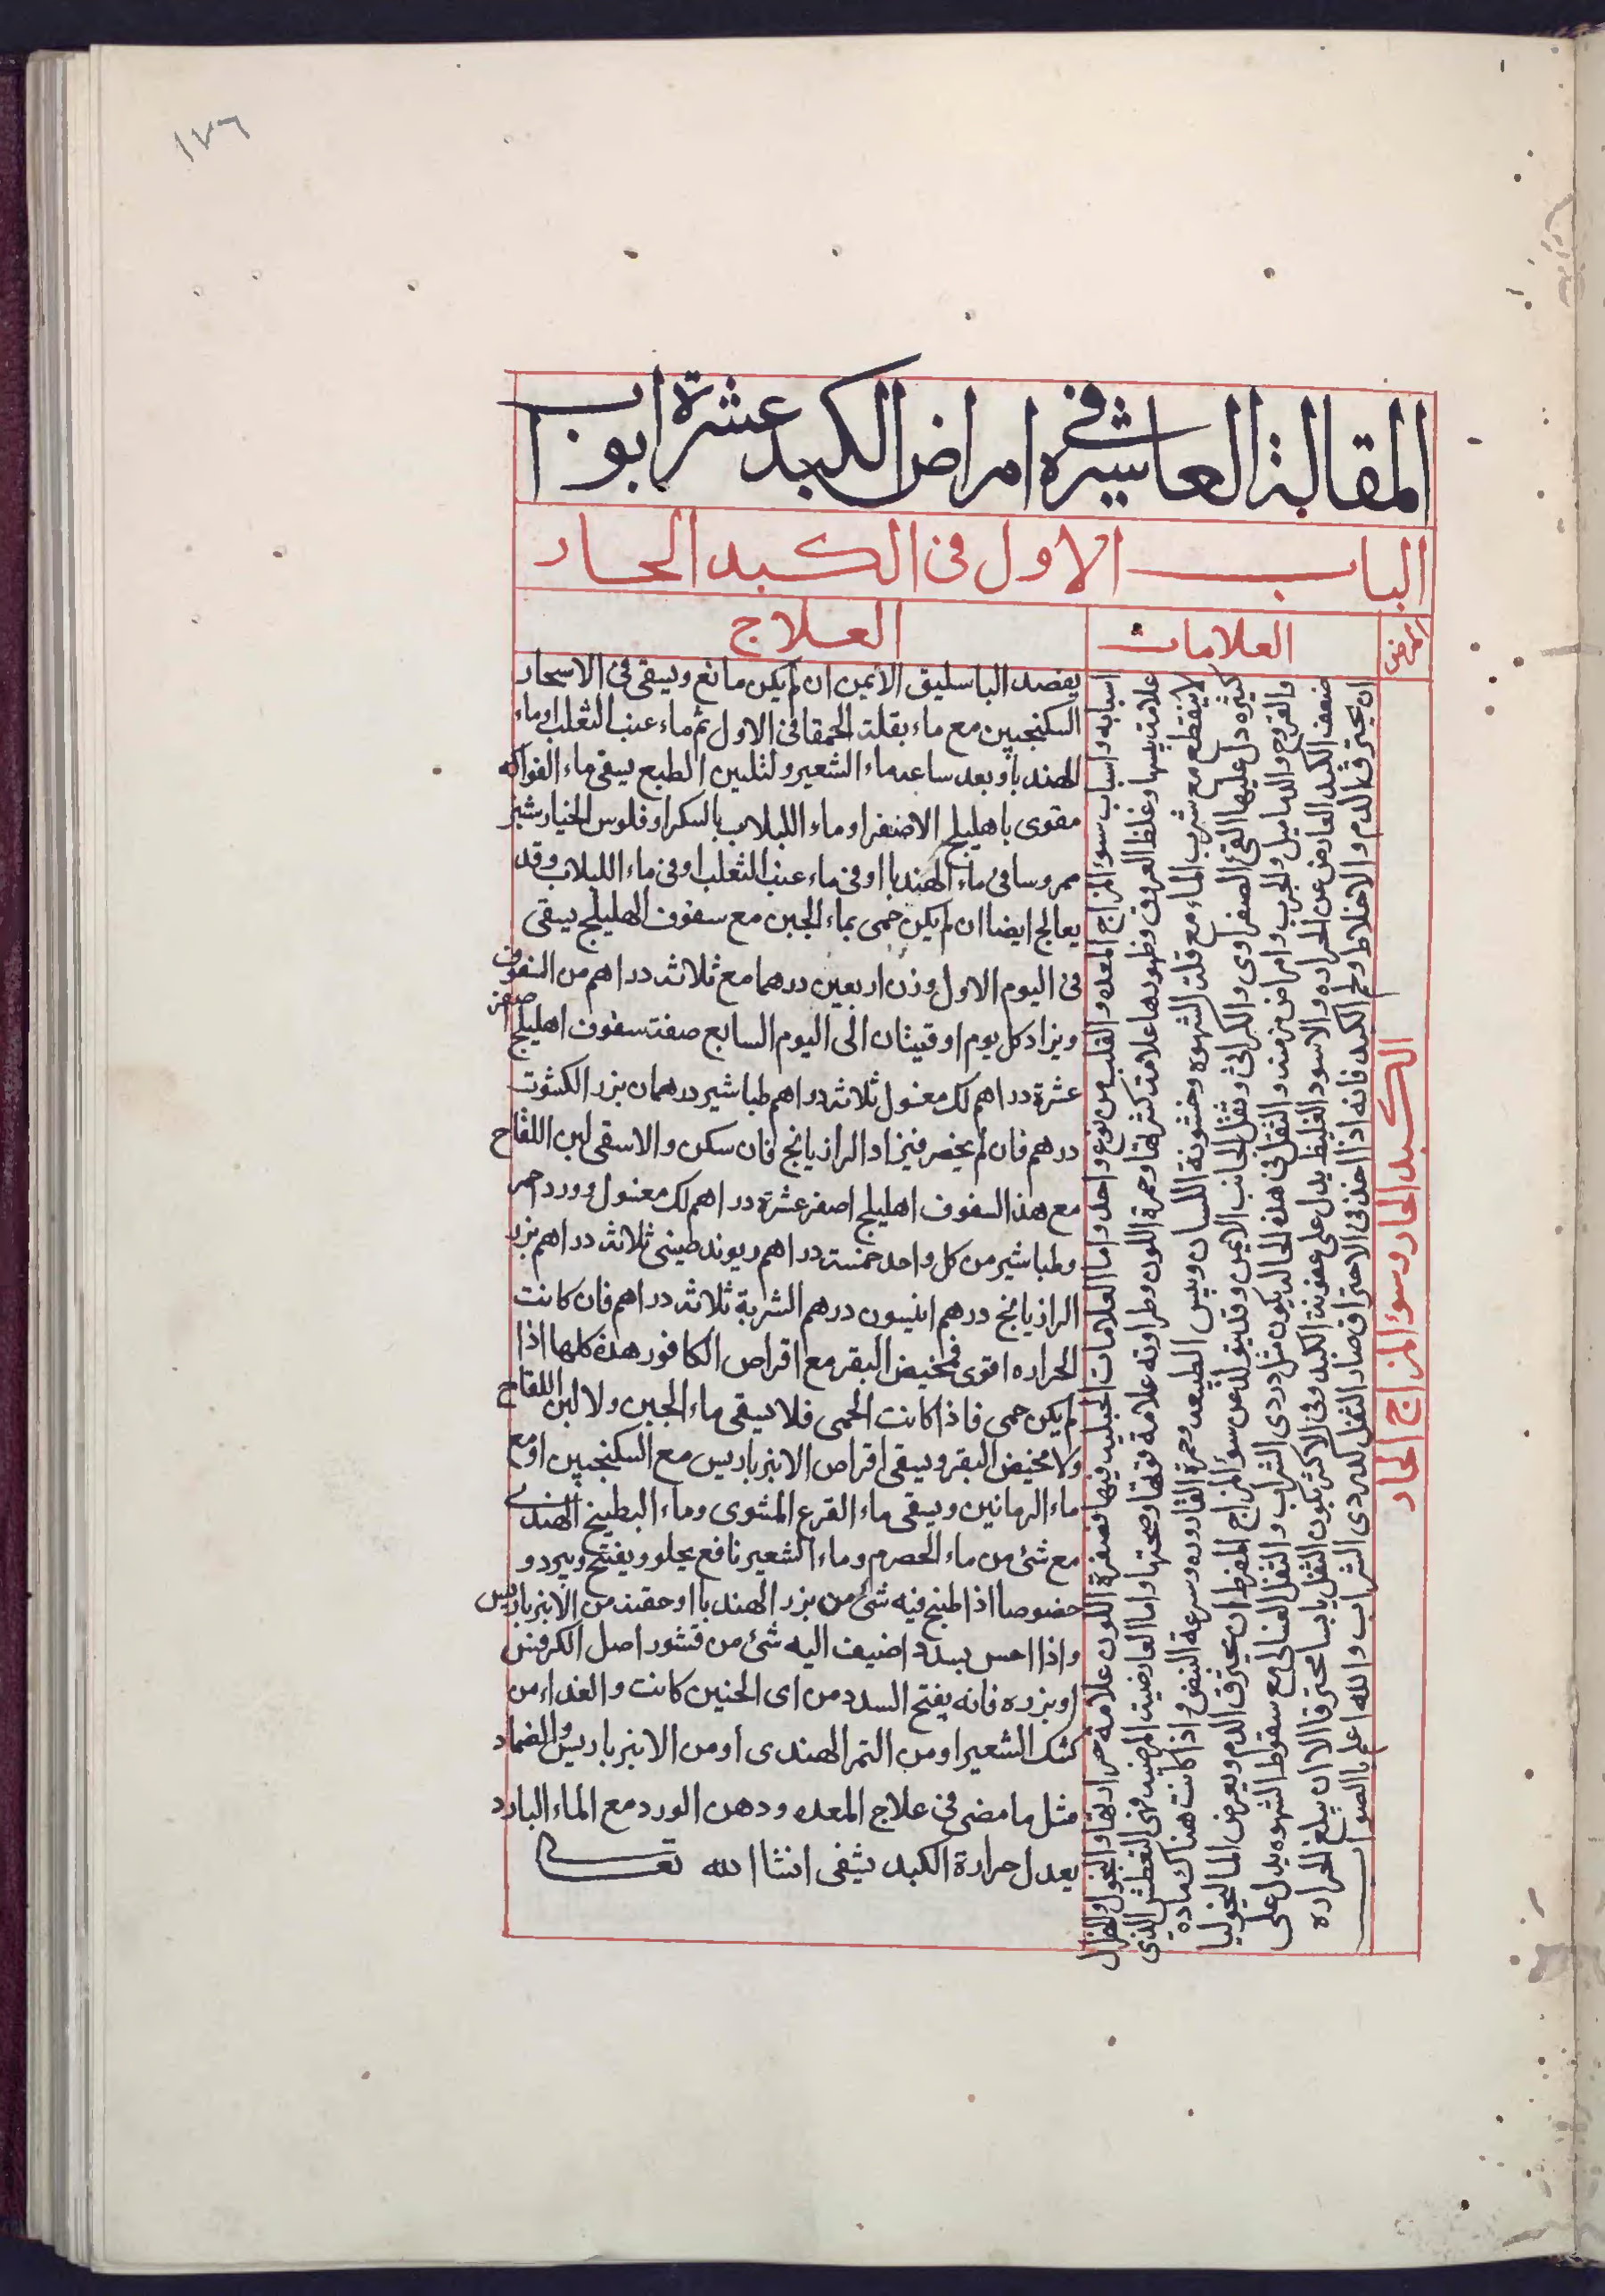 ١٧٦
المقالة العاشره فى امراض الكبد عشرة ابواب
الباب الاول فى الكبد الحار
المرض
العلامات
العلاج
الكبد الحار وسؤ المزاج الحار
اسبابه واسباب سوء المزاج المعده والقلب من نوع واحد واما العلامات الجبليه فيها فصفرة اللون علامة حرارتها والنحول والهزال
علامة يبسها وغلظ العروق وظهورها علامت كثرتها وحمرة اللون وطراوته علامة قوتها وصحتها واما العارضيت المرضيه فهى التعطش الذى
لا ينقطع مع شرب الماء مع قلت الشهوه وخشونة اللسان ويبس الطبيعه وحمرة القاروره وسرعة النبض واذا كانت هناك ماده
كثيره دل عليها القئ الصفراوى والكراثى وثقل الجانب الايمن وقد يتولد عن سؤ المزاج المفرط ان يحترق الدم ويعرض الماليخوليا
والقروح والدماميل والجرب وامراض مزمنه والثفل فى هذه الحال يكون مثل دردى الشراب والثفل الغسالى مع سقوط الشهوه يدل على
ضعف الكبد العارض عن الحراره والاسود الغليظ يدل على عفونت الكبد وفى الاكثر يكون الثفل يابسا محترقا الا ان يبلغ الحراره
ان يحترق الدم والاخلاط ولحم الكبد فانه اذا اخذ فى الاحتراق صار الثفل كدردى الشراب والله اعلم بالصواب
يفصد الباسليق الأيمن ان لم يكن مانع ويسقى فى الاسحار
السكنجبين مع ماء بقلة الحمقا فى الاول ثم ماء عنب الثعلب او ماء
الهندبا وبعد ساعه ماء الشعير ولتليين الطبع يسقى ماء الفواكه
مقوى باهليلج الاصفر او ماء اللبلاب بالسكر او فلوس الخيار شنبر
ممروسا فى ماء الهندبا او فى ماء عنب الثعلب او فى ماء اللبلاب وقد
يعالج ايضا ان لم يكن حمى بماء الجبن مع سفوف الهليلج يسقى
فى اليوم الاول وزن اربعين درهما مع ثلاثه دراهم من السفوف
ويزاد كل يوم اوقيتان الى اليوم السابع صفة سفوف اهليلج اصفر
عشرة دراهم لك مغسول ثلاثه دراهم طباشير درهمان بزر الكشوت
درهم فان لم يحضر فيزاد الرازيانج فان سكن والا سقى لبن اللقاح
مع هذا السفوف اهليلج اصفر عشرة دراهم لك مغسول وورد احمر
وطباشير من كل واحد خمسة دراهم ريوند صينى ثلاثه دراهم بزر
الرازيانج درهم انيسون درهم الشربة ثلاثه دراهم فان كانت
الحراره اقوى فمخيض البقر مع اقراص الكافور هذه كلها اذا
لم يكن حمى فاذا كانت الحمى فلا يسقى ماء الجبن ولا لبن اللقاح
ولا مخيض البقر ويسقى اقراص الانبرباريس مع السكنجبين او مع
ماء الرمانين ويسقى ماء القرع المشوى وماء البطيخ الهندى
مع شئ من ماء الحصرم وماء الشعير نافع يجلو ويفتح ويبرد و
خصوصا اذا طبخ فيه شئ من بزر الهندبا او حفنه من الانبرباريس
واذا احس بسدد اضيف اليه شئ من قشور اصل الكرفس
او بزره فانه يفتح السدد من اى الجنبين كانت والغداء من
كشك الشعير او من التمر الهندى او من الانبرباريس والضماد
مثل ما مضى فى علاج المعده ودهن الورد مع الماء البارد
يعدل حرارة الكبد يشفى انشا الله تعالى